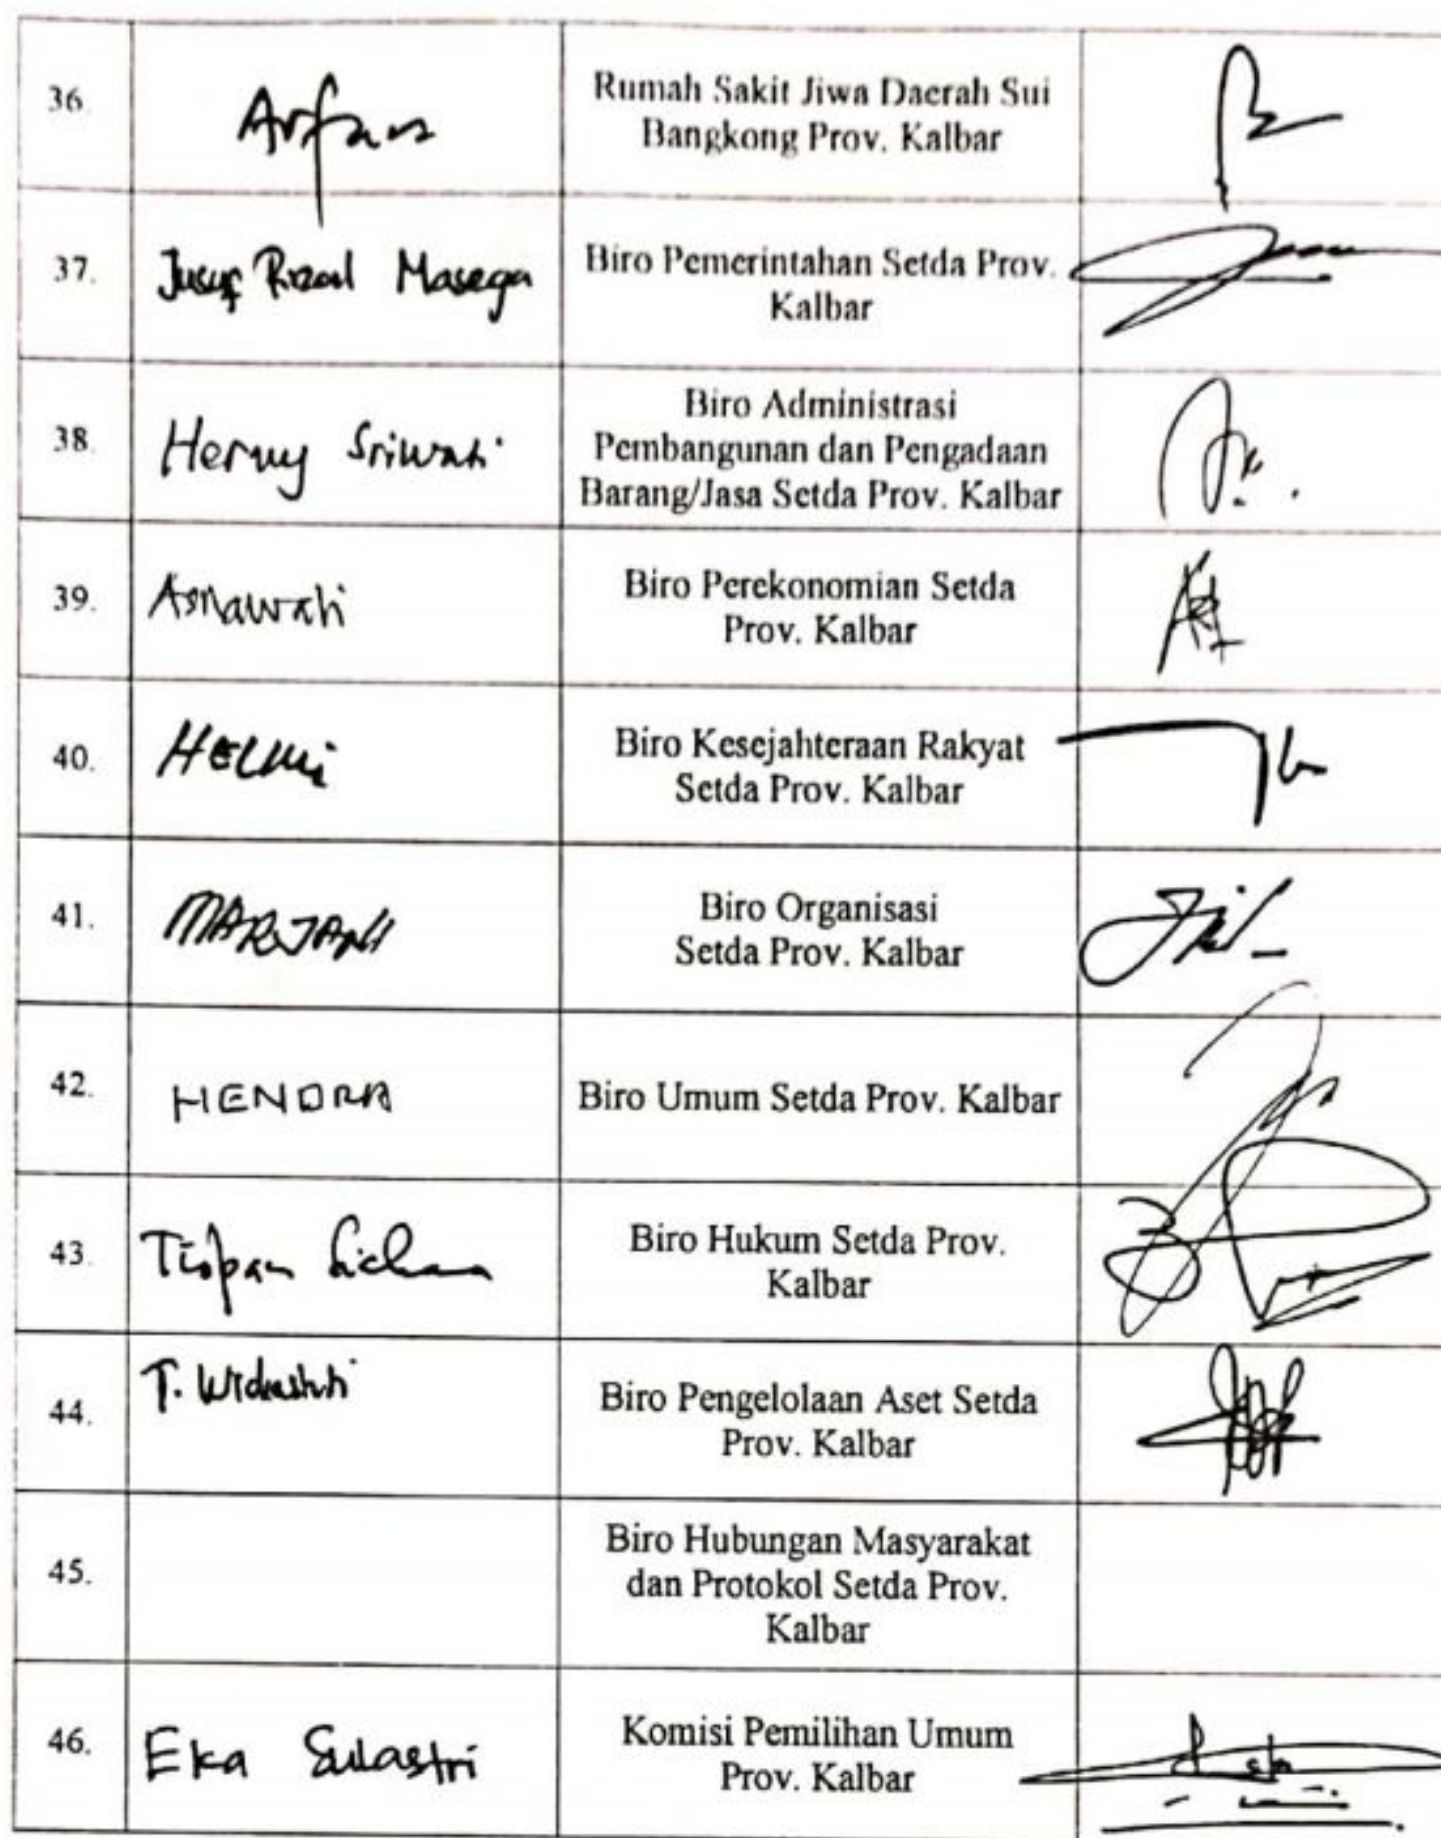 36.
Arfan
Rumah Sakit Jiwa Daerah Sui
Bangkong Prov. Kalbar
37.
Jusuf Rizal Masega
Biro Pemerintahan Setda Prov.
Kalbar
38.
Herny Sriwati
Biro Administrasi
Pembangunan dan Pengadaan
Barang/Jasa Setda Prov. Kalbar
39.
Asnawati
Biro Perekonomian Setda
Prov. Kalbar
40.
HELMi
Biro Kesejahteraan Rakyat
Setda Prov. Kalbar
41.
MARJANI
Biro Organisasi
Setda Prov. Kalbar
42.
HENDRA
Biro Umum Setda Prov. Kalbar
43.
Biro Hukum Setda Prov.
Kalbar
44.
T. Widiastuti
Biro Pengelolaan Aset Setda
Prov. Kalbar
45.
Biro Hubungan Masyarakat
dan Protokol Setda Prov.
Kalbar
46.
Eka Sulastri
Komisi Pemilihan Umum
Prov. Kalbar